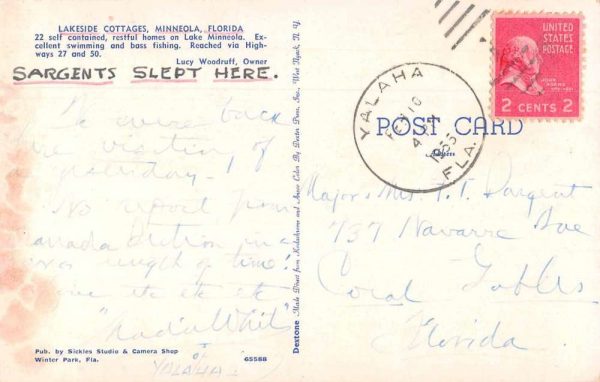 LAKESIDE COTTAGES, MINNEOLA, FLORIDA
22 self contained, restful homes on Lake Minneola. Ex-
cellent swimming and bass fishing. Reached via High-
ways 27 and 50.
Lucy Woodruff, Owner
SARGENTS SLEPT HERE.
were back
visiting
yesterday!
No report from
Canada
length of time!
etc etc etc
"Radio White"
of
YALAHA
Pub. by Sickles Studio & Camera Shop
Winter Park, Fla.
65588
Dextone Made Direct from Kodachrome and Ansco Color By Dexter Press, Inc., West Nyack, N. Y.
YALAHA
10
1955
FLA.
UNITED
STATES
POSTAGE
JOHN ADAMS
2 CENTS 2
POST CARD
Major & Mrs. T. T. Sargent
737 Navarre Ave
Coral Gables
Florida